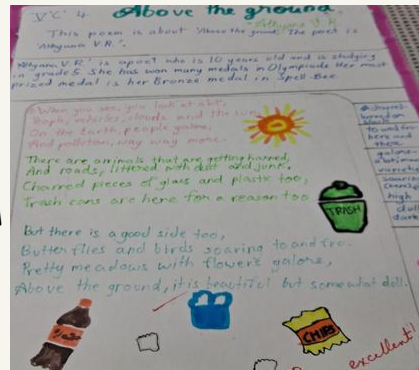 V.C 4
Above the ground.
- Athyana V.R
This poem is about 'Above the ground'. The poet is
'Athyana V.R'.
Athyana V.R is a poet who is 10 years old and is studying
in grade 5. She has won many medals in Olympiads. Her most
prized medal is her Bronze medal in Spell-Bee.
When you see, you look at
vehicles, clouds and the sun,
On the Earth, people galore,
And pollution, way way more.
There are animals that are getting harmed,
And roads, littered with dust and junk,
Charred pieces of glass and plastic too,
Trash cans are here for a reason too
But there is a good side too,
Butterflies and birds soaring to and fro.
Pretty meadows with flowers galore,
Above the ground, it is beautiful but somewhat dull.
to
here and
there.
galore-
high
dull
dark
TRASH
CHIPS
excellent